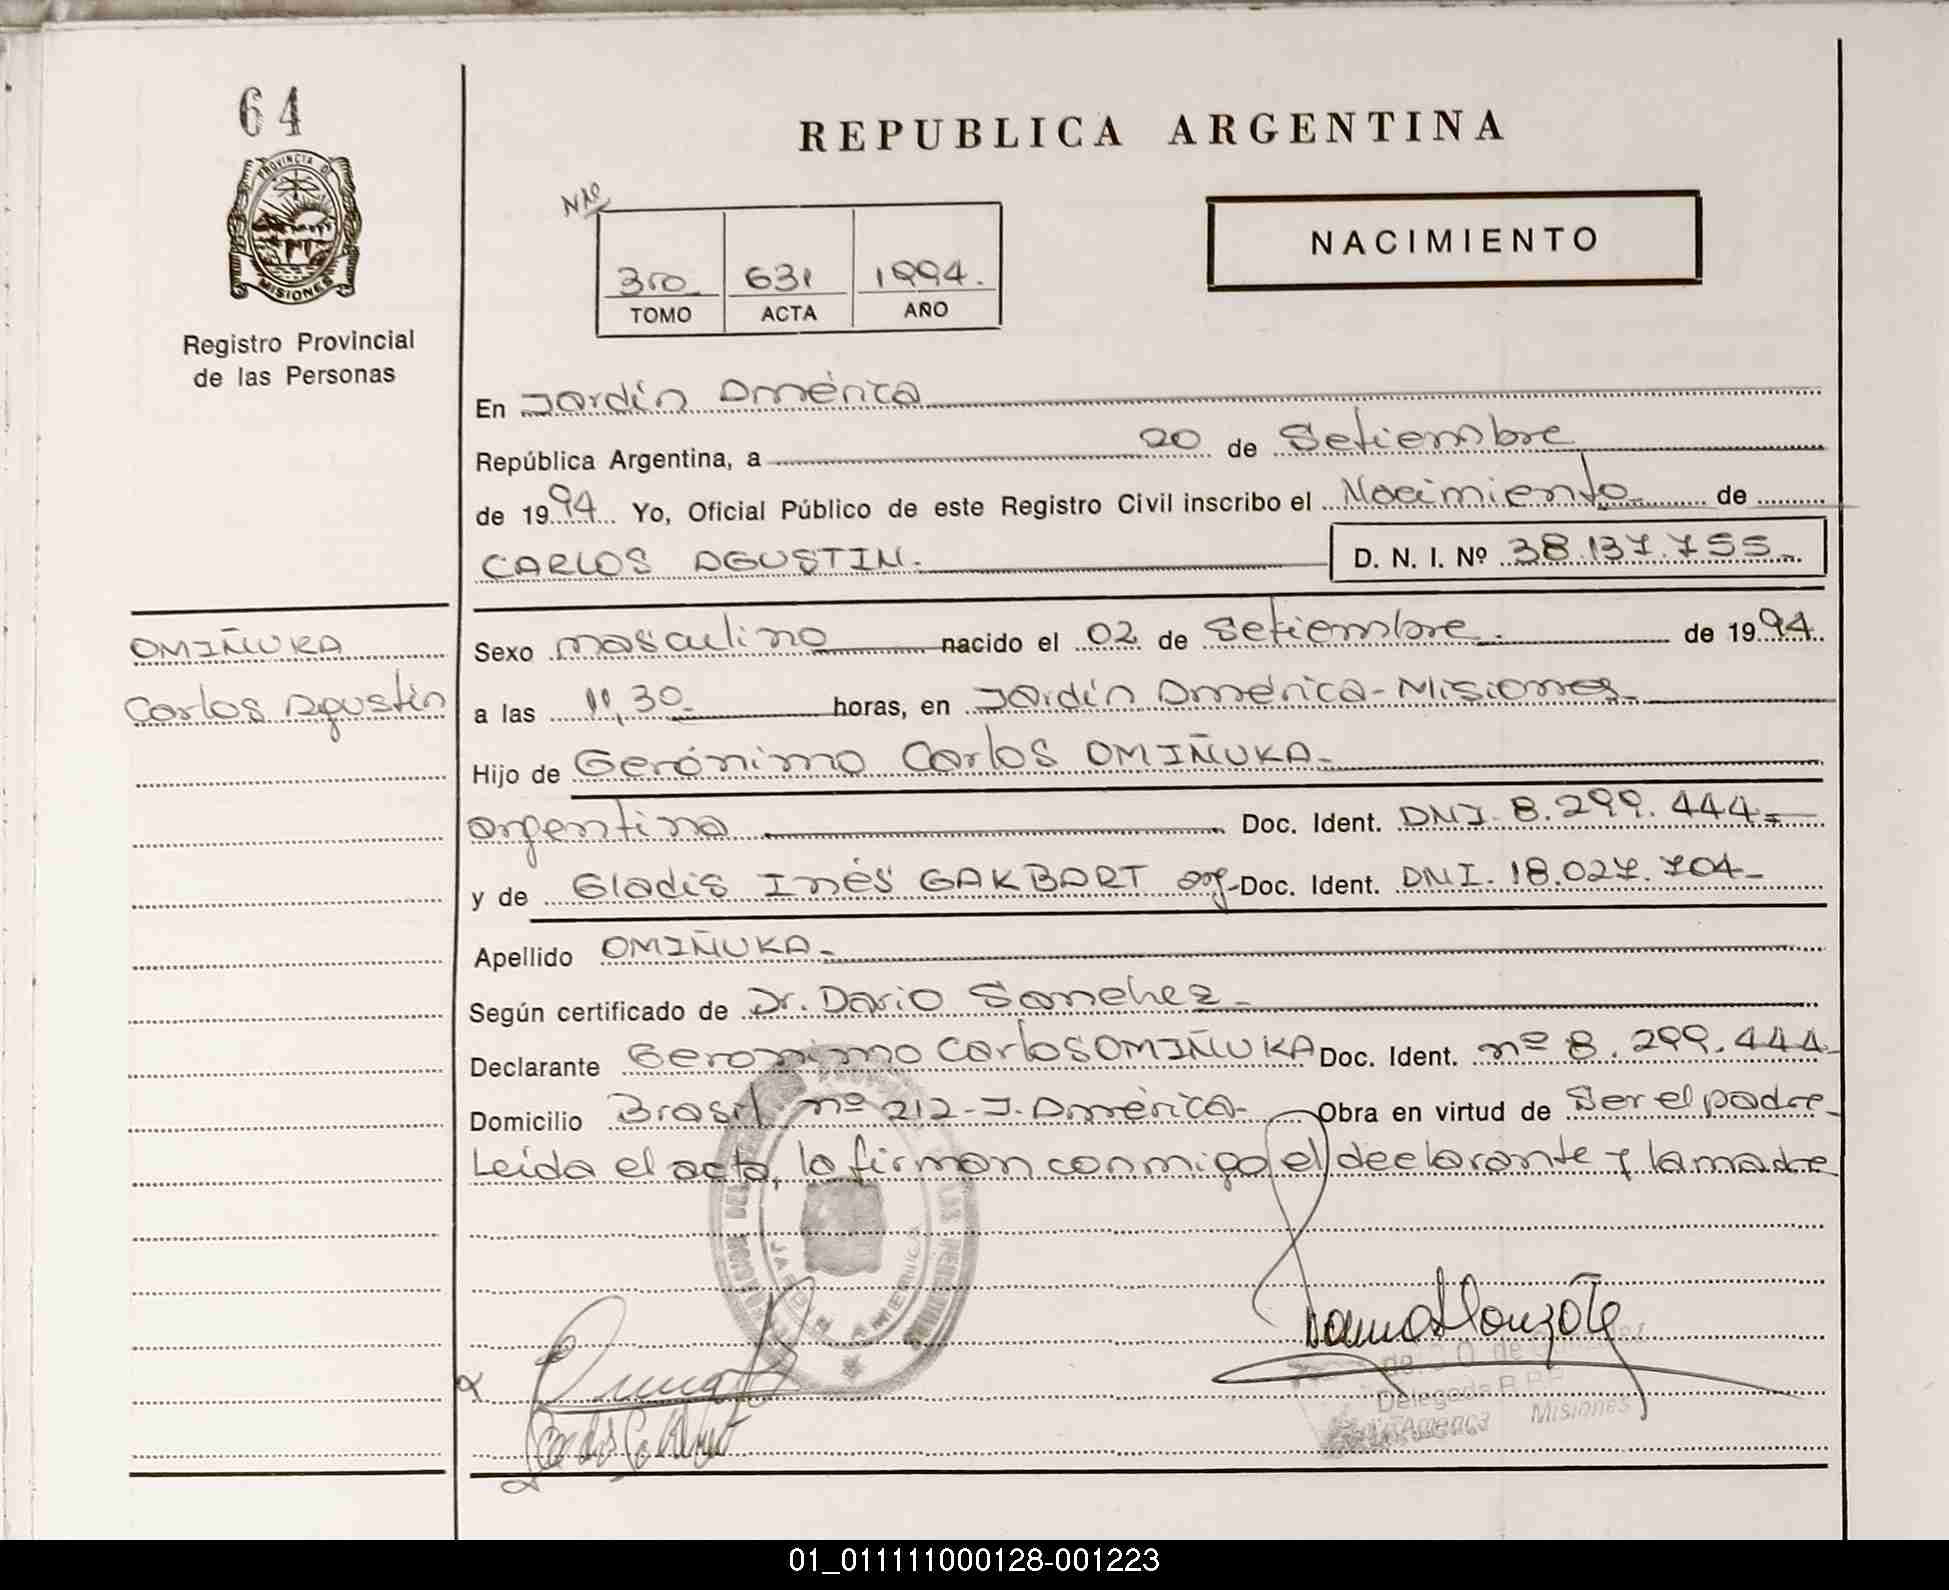 64
PROVINCIA DE
MISIONES
Registro Provincial
de las Personas
REPUBLICA ARGENTINA
NACIMIENTO
3ro 631 1994.
TOMO ACTA AÑO
En Jardín América
República Argentina, a 20 de Setiembre
de 1994 Yo, Oficial Público de este Registro Civil inscribo el Nacimiento de
CARLOS AGUSTIN. D. N. I. Nº 38.137.755
OMIÑUKA
Carlos Agustín
Sexo masculino nacido el 02 de Setiembre de 1994.
a las 11,30 horas, en Jardín América - Misiones
Hijo de Gerónimo Carlos OMIÑUKA
argentino Doc. Ident. DNI. 8.299.444
y de Gladis Inés GAKBART arg. Doc. Ident. DNI. 18.027.704
Apellido OMIÑUKA
Según certificado de Dr. Dario Sanchez
Declarante Geronimo Carlos OMIÑUKA Doc. Ident. nº 8.299.444
Domicilio Brasil nº 212 - J. América Obra en virtud de Ser el padre
Leída el acta, la firman conmigo el declarante y la madre
Delegada
Misiones
01_011111000128-001223